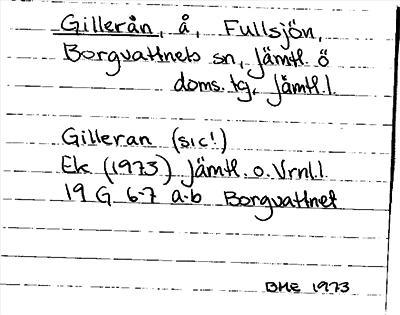 Gillerån, å, Fullsjön,
Borgvattnets sn, Jämtl. ö
doms. tg, Jämtl. l.
Gilleran (sic!)
Ek (1973) Jämtl. o. Vrnl. l.
19 G 6-7 a-b Borgvattnet
BME 1973